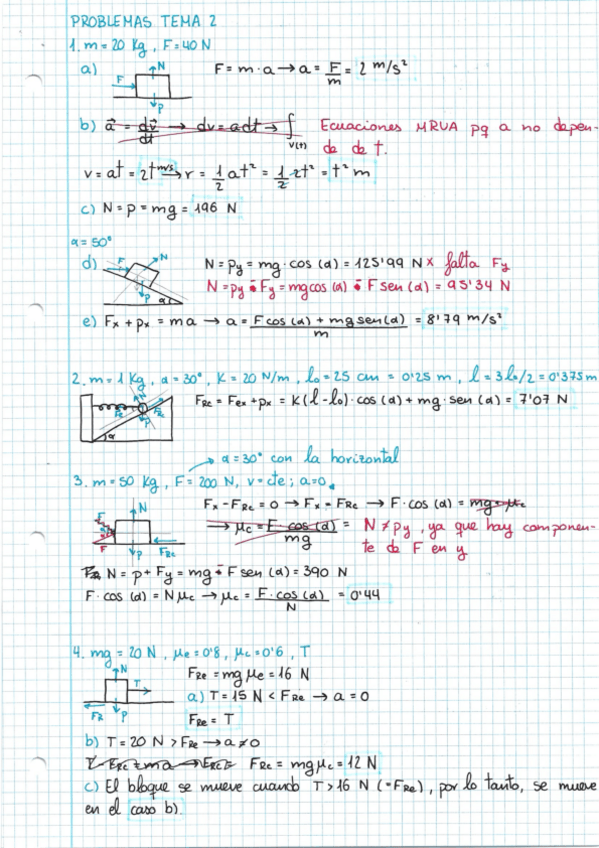 PROBLEMAS TEMA 2
1. m = 20 Kg, F = 40 N
a) F N P F = m · a → a = F/m = 2 m/s²
b) a⃗ = dv⃗/dt → dv = a dt → ∫v(t) Ecuaciones MRUA pq a no depen-
de de t.
v = at = 2t m/s → r = 1/2 at² = 1/2 2t² = t² m
c) N = P = mg = 196 N
α = 50°
d) F N P α N = Py = mg · cos (α) = 125'99 N × falta Fy
N = Py - Fy = mg cos (α) - F sen (α) = 95'34 N
e) Fx + Px = ma → a = F cos (α) + mg sen (α)/m = 8'79 m/s²
2. m = 1 Kg, α = 30°, K = 20 N/m, l₀ = 25 cm = 0'25 m, l = 3l₀/2 = 0'375 m
α FRe = Fex + Px = K (l - l₀) · cos (α) + mg · sen (α) = 7'07 N
α = 30° con la horizontal
3. m = 50 Kg, F = 200 N, v = cte; a = 0
F F N P FRc Fx - FRc = 0 → Fx = FRc → F · cos (α) = mg · μc
→ μc = F · cos (α)/mg = N ≠ Py, ya que hay componen-
te de F en y
N = P + Fy = mg - F sen (α) = 390 N
F · cos (α) = N μc → μc = F · cos (α)/N = 0'44
4. mg = 20 N, μe = 0'8, μc = 0'6, T
N T FR P FRe = mg μe = 16 N
a) T = 15 N < FRe → a = 0
FRe = T
b) T = 20 N > FRe → a ≠ 0
T - FRc = ma → FRc = FRc = mg μc = 12 N
c) El bloque se mueve cuando T > 16 N (= FRe), por lo tanto, se mueve
en el caso b).